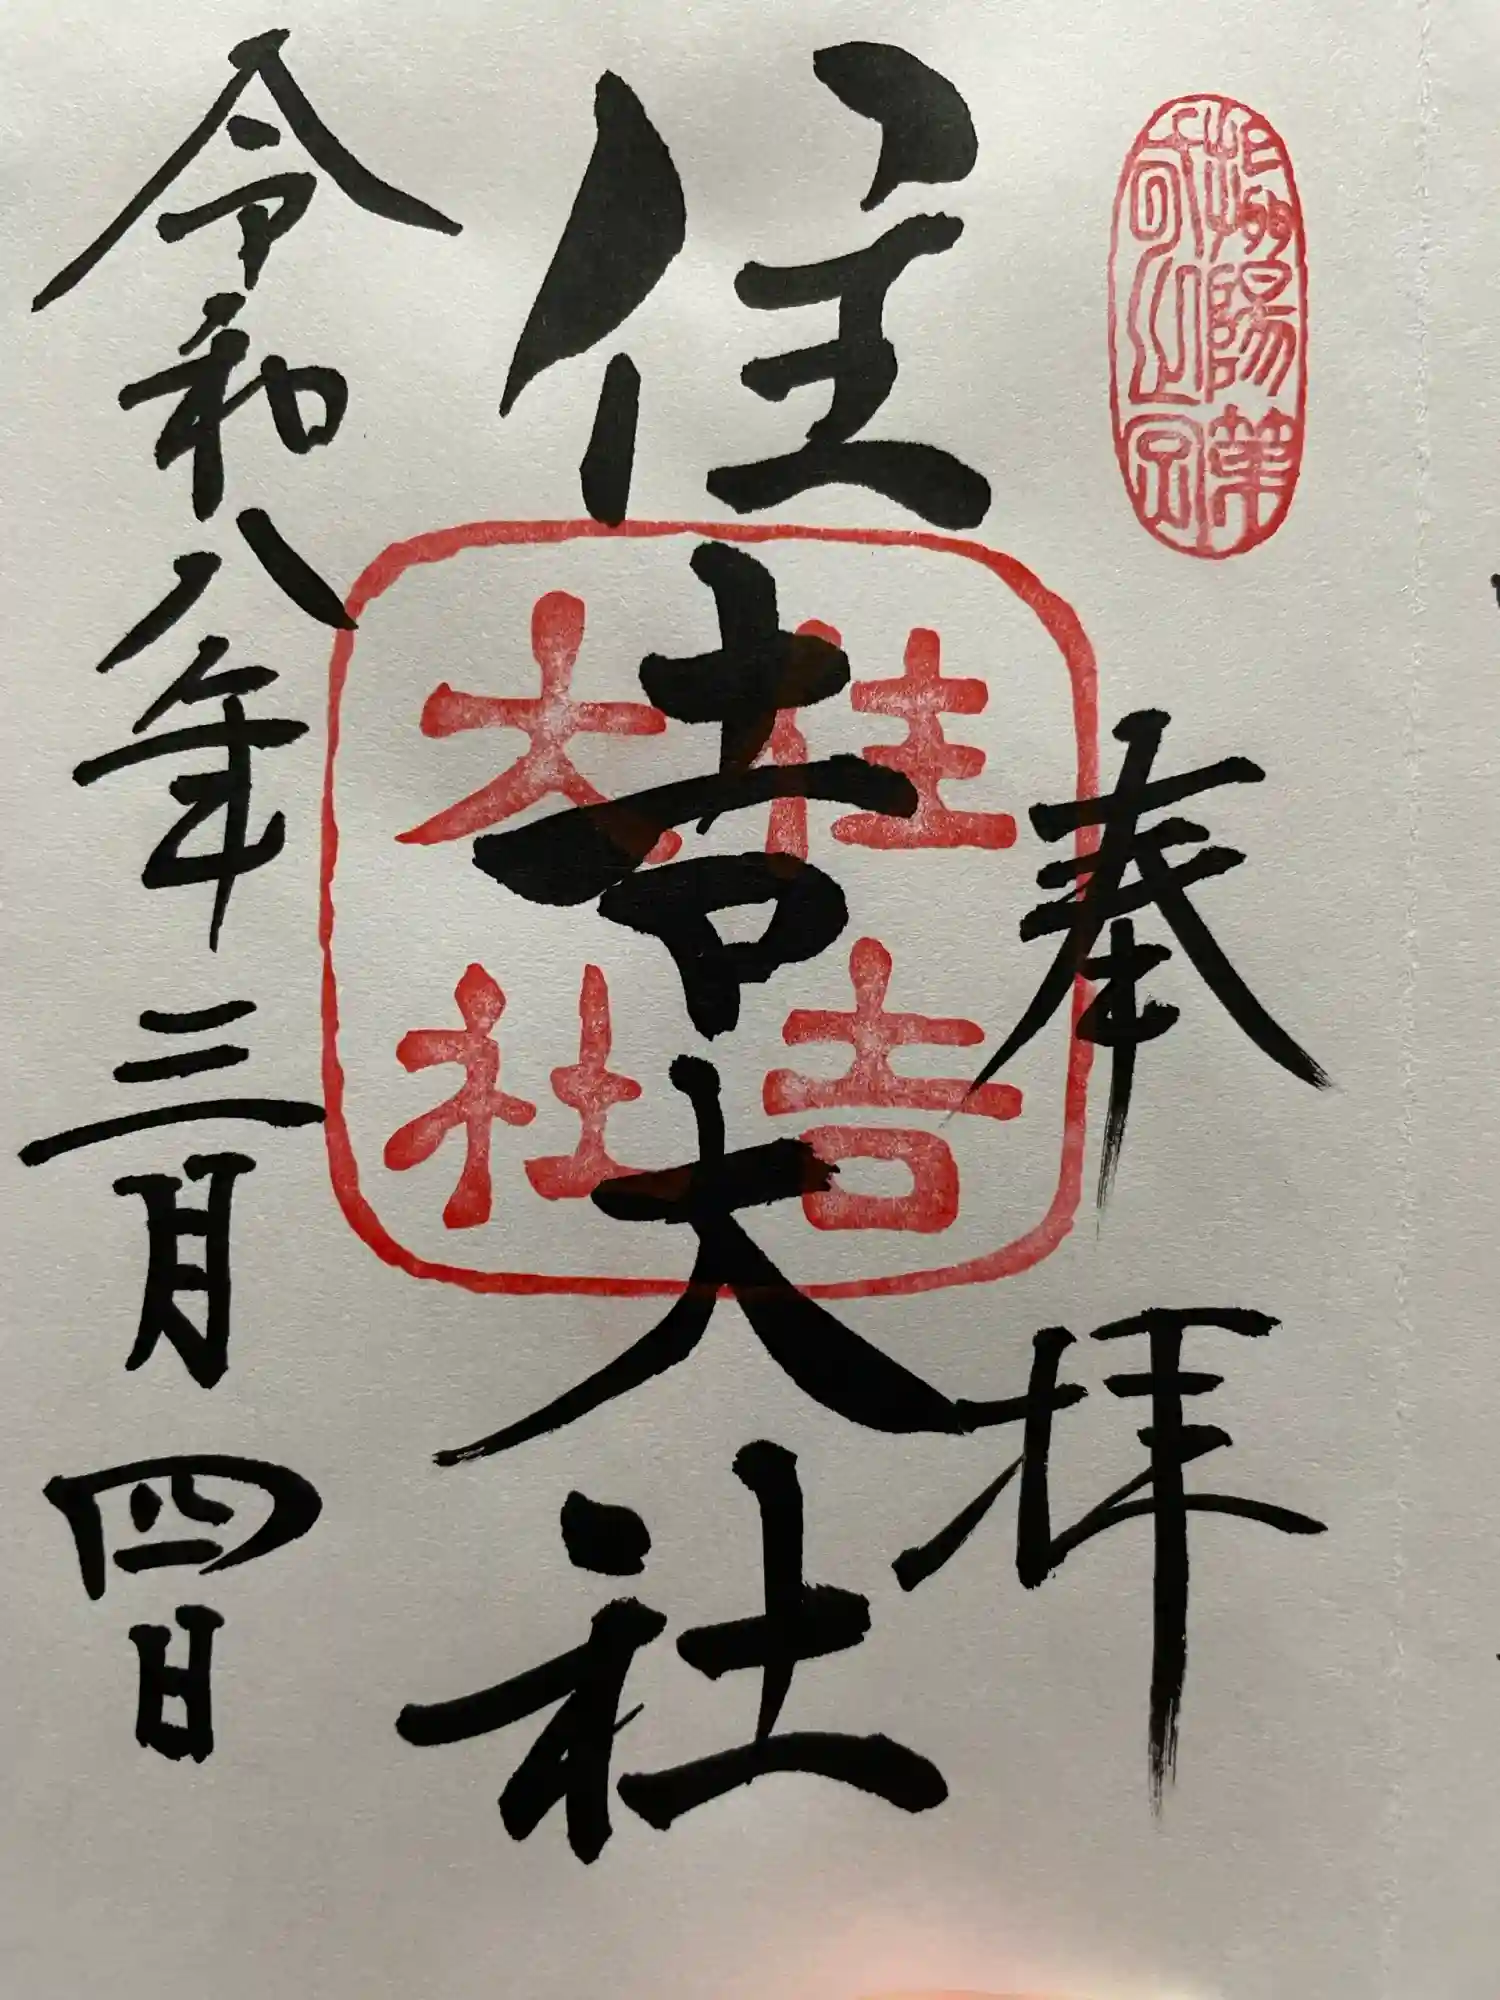 奉拝
住吉大社
住吉大社
令和八年三月四日